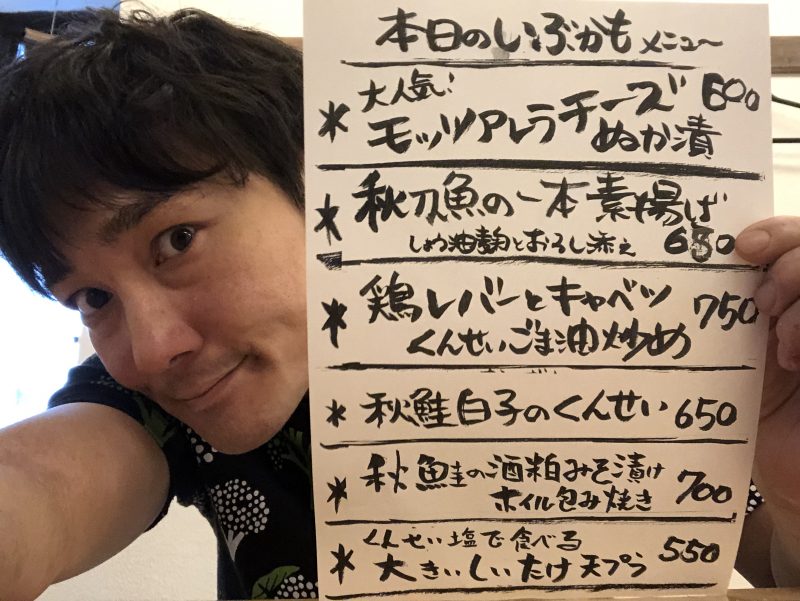 本日のいぶかもメニュー
大人気! 600
モッツアレラチーズ
ぬか漬
秋刀魚の一本素揚げ
しょう油麹とおろし添え 680
鶏レバーとキャベツ 750
くんせいごま油炒め
秋鮭白子のくんせい 650
秋鮭の酒粕みそ漬け
ホイル包み焼き 700
くんせい塩で食べる
大きいしいたけ天プラ 550